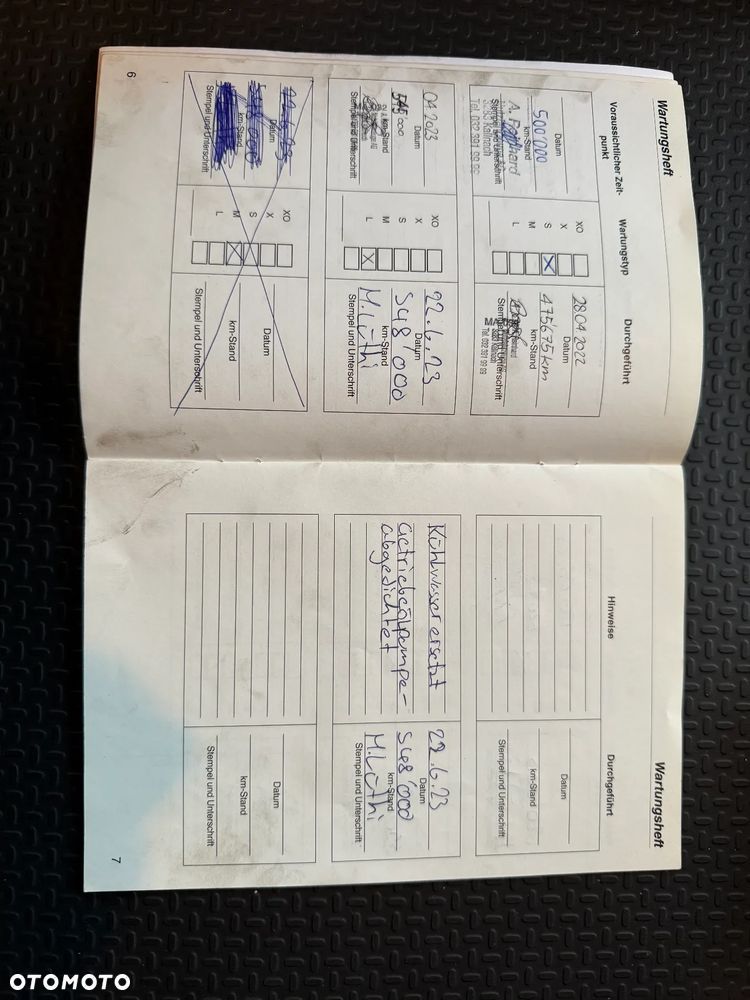 Wartungsheft
Voraussichtlicher Zeit-
punkt
Wartungstyp
Durchgeführt
500'000
Datum
km-Stand
Stempel und Unterschrift
3283 Kallnach
Tel. 032 391 99 89
XO
X
S
M
L
28.04.2022
Datum
475675 km
km-Stand
Stempel und Unterschrift
3283 Kallnach
Tel. 032 391 99 89
04.2023
Datum
545 000
km-Stand
Stempel und Unterschrift
XO
X
S
M
L
22.6.23
Datum
548'000
km-Stand
M. Lüthi
Stempel und Unterschrift
22.6.23
Datum
548'000
km-Stand
Stempel und Unterschrift
XO
X
S
M
L
Datum
km-Stand
Stempel und Unterschrift
6
Wartungsheft
Hinweise
Durchgeführt
Datum
km-Stand
Stempel und Unterschrift
Kühlwasser ersetzt
Getriebeölpumpe-
abgedichtet
22.6.23
Datum
548'000
km-Stand
M. Lüthi
Stempel und Unterschrift
Datum
km-Stand
Stempel und Unterschrift
7
OTOMOTO